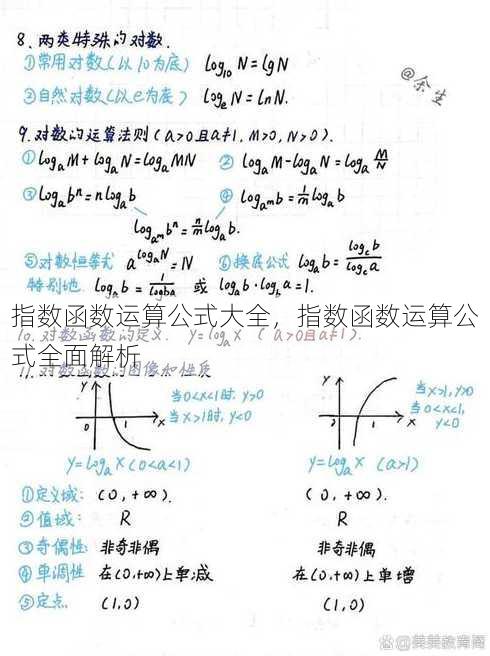 8、两类特殊的对数.
①常用对数(以10为底) log₁₀ N = lg N
@余生
②自然对数(以e为底) logₑ N = ln N.
9.对数的运算法则(a>0且a≠1, M>0, N>0).
①logₐM + logₐN = logₐMN ②logₐM - logₐN = logₐ M/N
③logₐbⁿ = nlogₐb ④log_{a^m} b = 1/m logₐb
log_{a^m} bⁿ = n/m logₐb.
⑤对数恒等式 a^{logₐN} = N ⑥换底公式 logₐb = log_c b / log_c a
特别地 logₐb = 1/log_b a 或 logₐb · log_b a = 1.
指数函数运算公式大全，指数函数运算公
式全面解析
10.对数函数的定义. y = logₐx (a>0且a≠1).
11.对数函数的图像和性质
y y
当0<x<1时, y>0 当x>1, y>0
当x>1时, y<0 当0<x<1, y<0
0 1 x 0 1 x
y = logₐx (0<a<1) y = logₐx (a>1)
①定义域: (0, +∞). (0, +∞).
②值域: R R
③奇偶性: 非奇非偶 非奇非偶
④单调性 在(0,+∞)上单减 在(0,+∞)上单增
⑤定点 (1,0) (1,0)
@美美教育阁